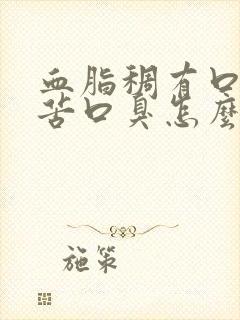 血脂稠有口
苦口臭怎麼
施策